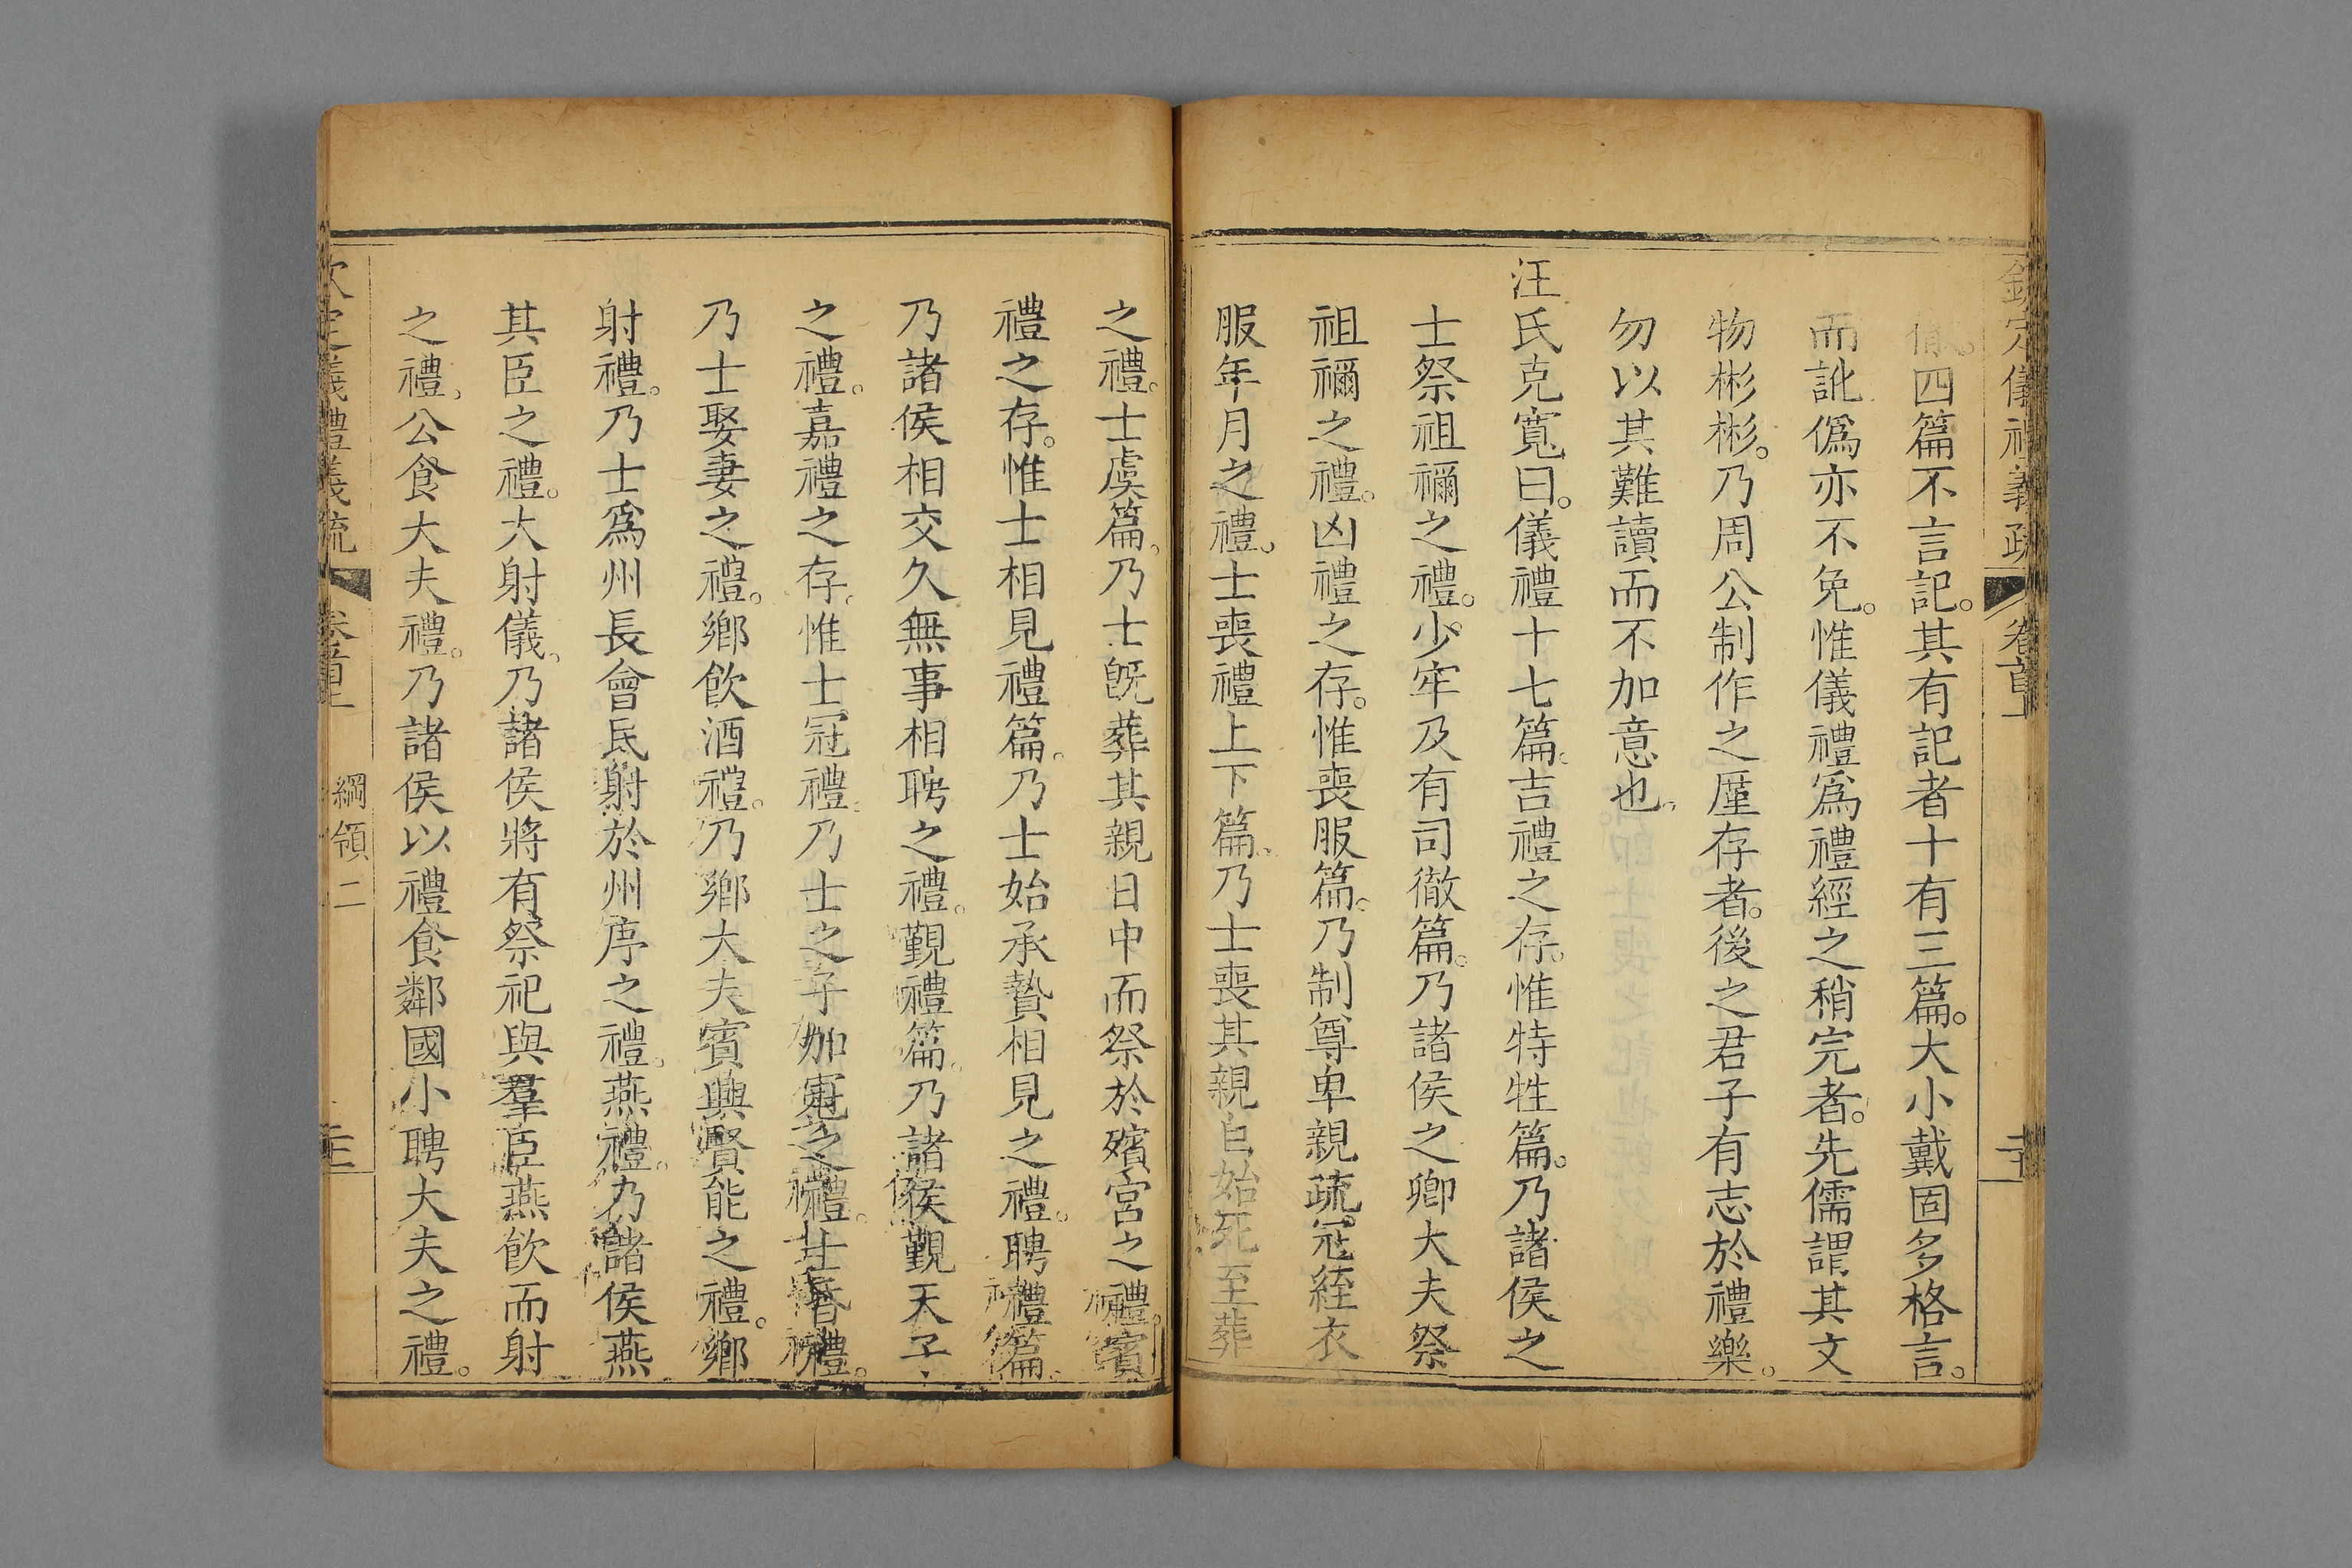 欽定儀禮義疏 卷首上
徹。四篇不言記。其有記者十有三篇。大小戴固多格言。
而訛僞亦不免。惟儀禮爲禮經之稍完者。先儒謂其文
物彬彬。乃周公制作之厪存者。後之君子有志於禮樂。
勿以其難讀而不加意也。
汪氏克寬曰。儀禮十七篇。吉禮之存。惟特牲篇。乃諸侯之
士祭祖禰之禮。少牢及有司徹篇。乃諸侯之卿大夫祭
祖禰之禮。凶禮之存。惟喪服篇。乃制尊卑親疏冠絰衣
服年月之禮。士喪禮上下篇。乃士喪其親自始死至葬
之禮。士虞篇。乃士旣葬其親日中而祭於殯宮之禮。賓
禮之存。惟士相見禮篇。乃士始承贄相見之禮。聘禮篇。
乃諸侯相交久無事相聘之禮。覲禮篇。乃諸侯覲天子
之禮。嘉禮之存。惟士冠禮。乃士之子加冠之禮。士昏禮。
乃士娶妻之禮。鄉飮酒禮。乃鄉大夫賓興賢能之禮。鄉
射禮。乃士爲州長會民射於州序之禮。燕禮。乃諸侯燕
其臣之禮。大射儀。乃諸侯將有祭祀與羣臣燕飮而射
之禮。公食大夫禮。乃諸侯以禮食鄰國小聘大夫之禮。
欽定儀禮義疏 卷首上 綱領二